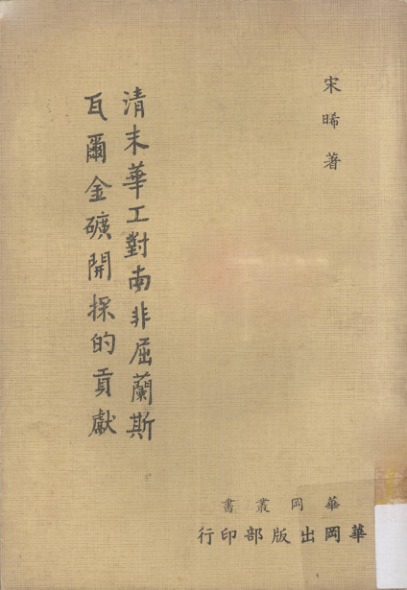 宋晞著
清末華工對南非屈蘭斯
瓦爾金礦開採的貢獻
華岡叢書
華岡出版部印行